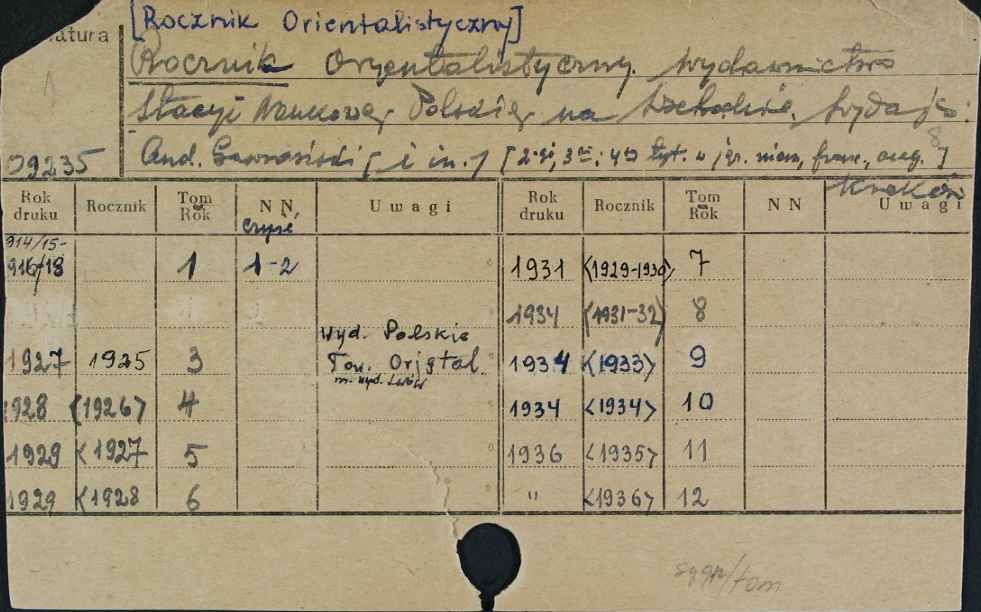 [Rocznik Orientalistyczny]
atura
Rocznik Oryentalistyczny. Wydawnictwo
Stacyi Naukowej Polskiej na Wschodzie. Wydaje:
And. Gawroński [i in.] [2-gi, 3-ci, 4-ty tyt. w jęz. niem., franc., ang.]
09235
Kraków
Rok druku Rocznik Tom Rok NN Uwagi Rok druku Rocznik Tom Rok NN Uwagi
część
914/15-
916/18 1 1-2 1931 <1929-1930> 7
1934 <1931-32> 8
Wyd. Polskie
1927 1925 3 Tow. Orjetal. 1934 <1933> 9
m. wyd. Lwów
1928 <1926> 4 1934 <1934> 10
1929 <1927 5 1936 <1935> 11
1929 <1928 6 " <1936> 12
sygn/tom